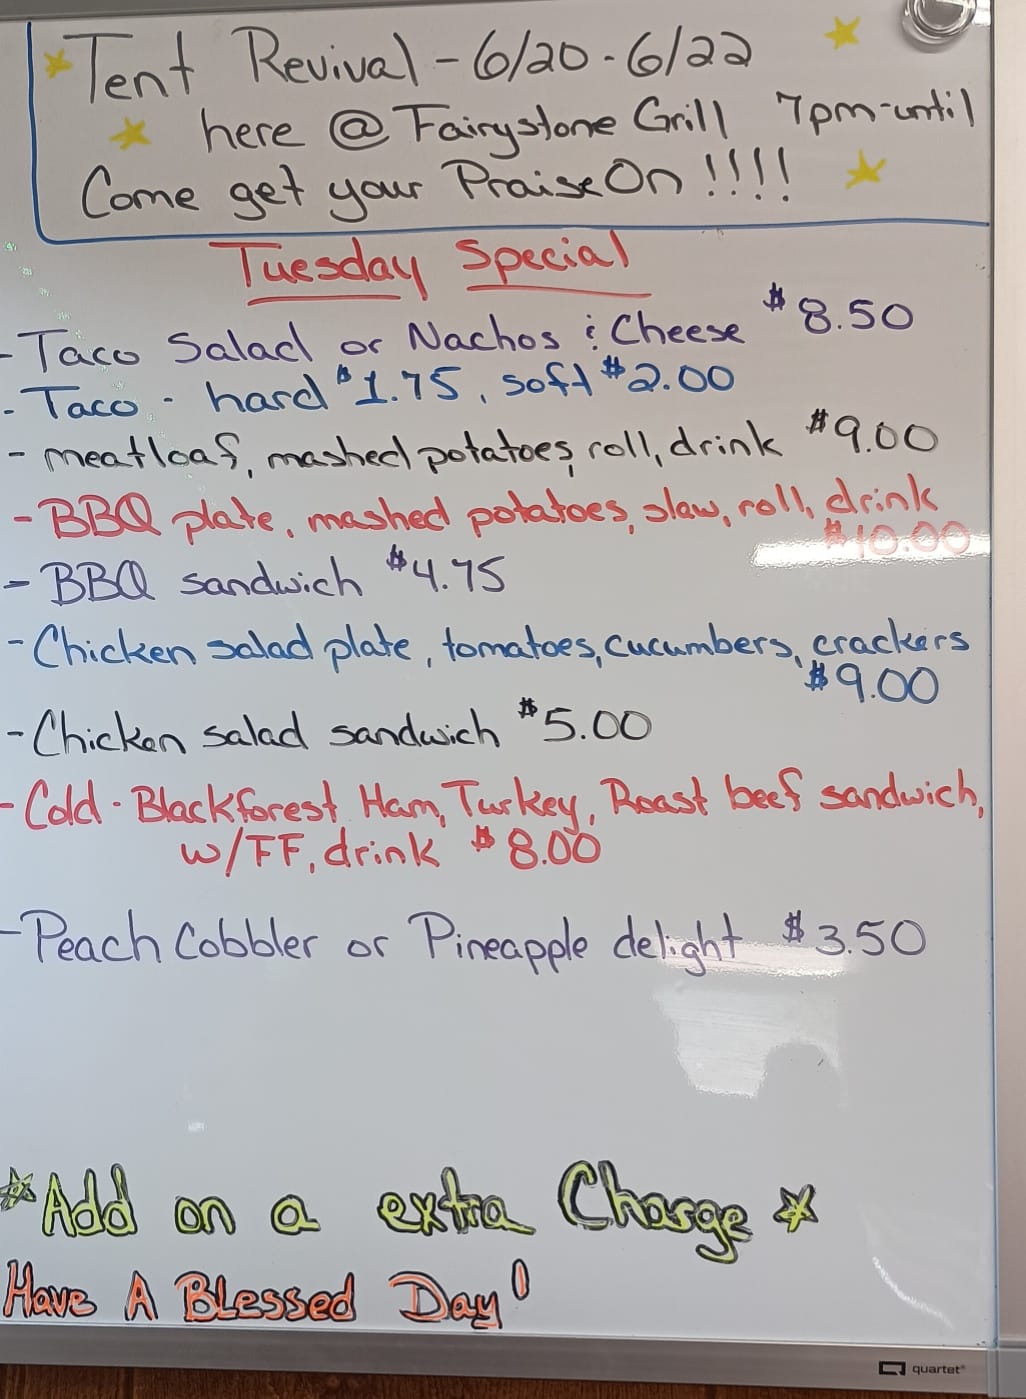 Tent Revival - 6/20 - 6/22
here @ Fairystone Grill 7pm-until
Come get your Praise On !!!!
Tuesday Special
- Taco Salad or Nachos & Cheese $8.50
- Taco - hard $1.75, soft $2.00
- meatloaf, mashed potatoes, roll, drink $9.00
- BBQ plate, mashed potatoes, slaw, roll, drink
$10.00
- BBQ sandwich $4.75
- Chicken salad plate, tomatoes, cucumbers, crackers
$9.00
- Chicken salad sandwich $5.00
- Cold - Blackforest Ham, Turkey, Roast beef sandwich,
w/FF, drink $8.00
- Peach Cobbler or Pineapple delight $3.50
*Add on a extra Charge*
Have A Blessed Day!
quartet®